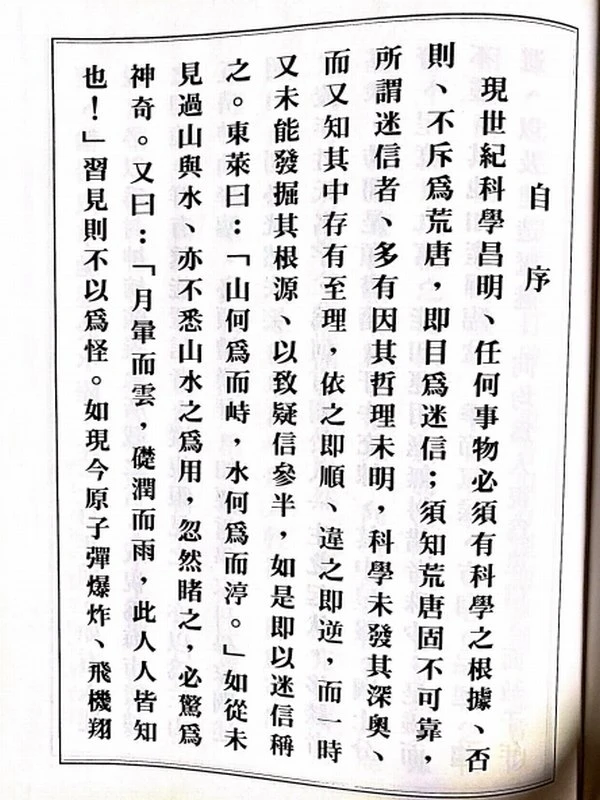 自序
現世紀科學昌明、任何事物必須有科學之根據、否
則、不斥爲荒唐，即目爲迷信；須知荒唐固不可靠，
所謂迷信者、多有因其哲理未明，科學未發其深奧、
而又知其中存有至理，依之即順、違之即逆，而一時
又未能發掘其根源、以致疑信參半，如是即以迷信稱
之。東萊曰：「山何爲而峙，水何爲而渟。」如從未
見過山與水、亦不悉山水之爲用，忽然睹之，必驚爲
神奇。又曰：「月暈而雲，礎潤而雨，此人人皆知
也！」習見則不以爲怪。如現今原子彈爆炸、飛機翔